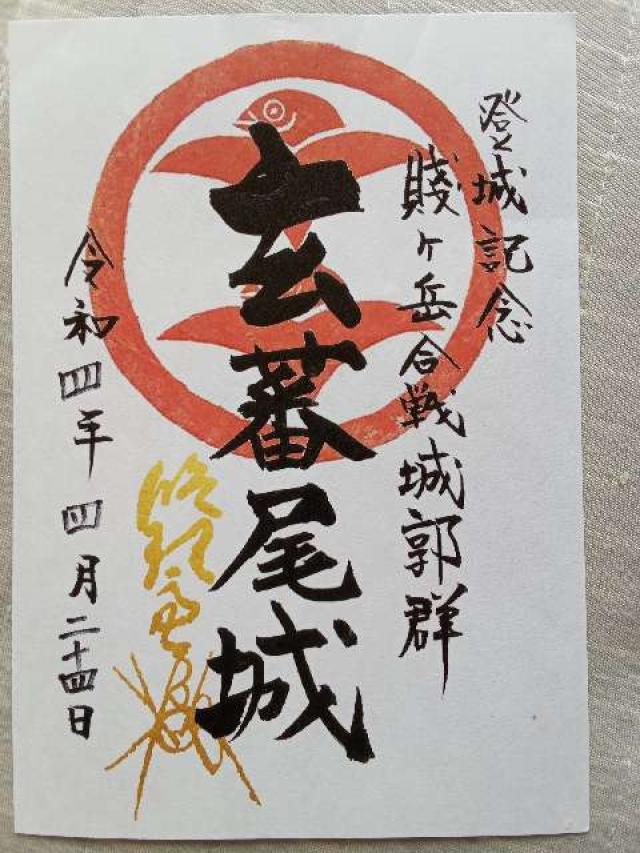 登城記念
賤ヶ岳合戦城郭群
玄蕃尾城
令和四年四月二十四日